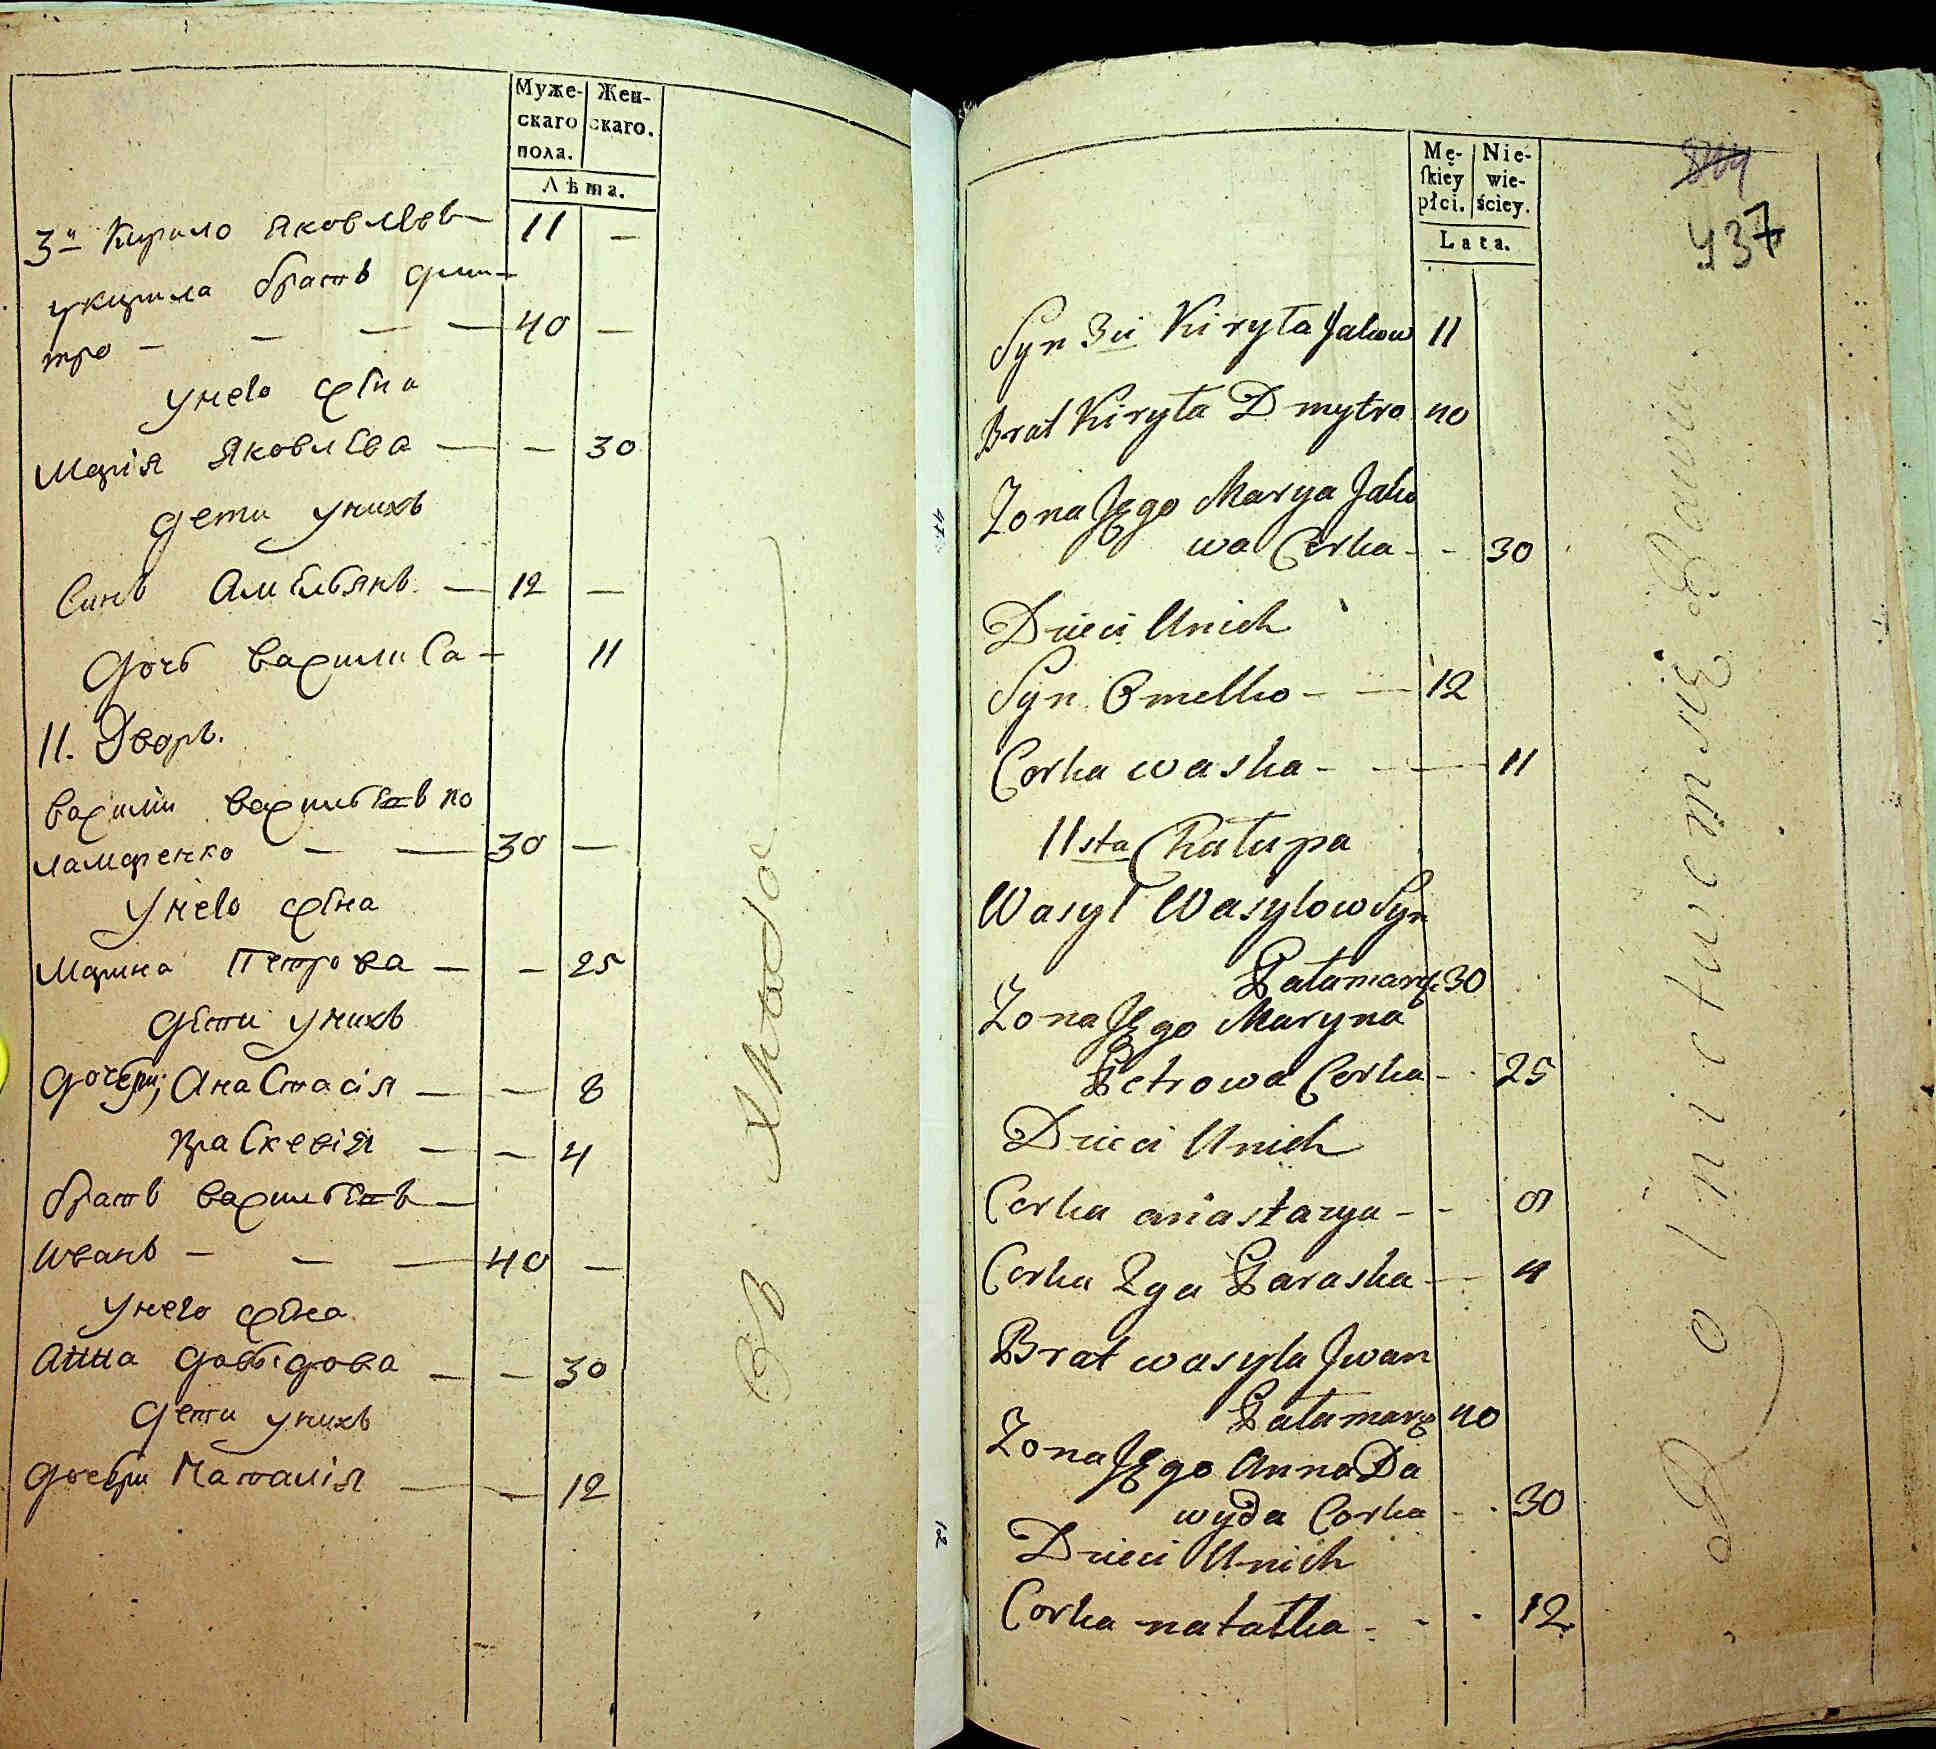 Муже-
скаго
пола.
Жен-
скаго.
Лѣта.
3й Кирило Яковлевъ 11 —
укирила братъ Дми-
тро — — — — 40 —
унего жена
Марія Яковлева — — 30
дети унихъ
Синъ Амельянъ — 12 —
дочъ василиса — 11
11. Дворъ.
василий васильевъ по
ламаренко — — 30 —
унего жена
Марина Петрова — — 25
дети унихъ
дочери; Анастасія — — 8
Праскевія — — 4
братъ васильевъ —
иванъ — — — 40 —
унего жена
Анна довыдова — — 30
дети унихъ
дочери Наталія — — 12
Mę-
skiey
płci.
Nie-
wie-
ściey.
Lata.
437
Syn 3ci Kiryła Jakow 11
Brat Kiryła Dmytro 40
Zona Jego Marya Jako
wa Corka - - 30
Dzieci Unich
Syn Omelko - — 12
Corka waska - - — 11
11sta Chałupa
Wasyl Wasylow Syn
Pałamarz 30
Zona Jego Maryna
Petrowa Corka - - 25
Dzieci Unich
Corka anastazya - - 8
Corka 2ga Paraska — 4
Brat wasyla Jwan
Pałamarz 40
Zona Jego Anna Da
wyda Corka - - 30
Dzieci Unich
Corka natałka - - - 12